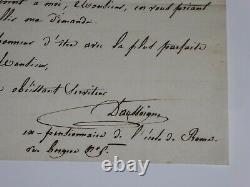 à moi, Monsieur, en vous priant
ma demande
honneur d'être avec la plus parfaite
Monsieur,
obéissant Serviteur
Daussoigne
ex-pensionnaire de l'école de Rome
rue Bergère n° 5.